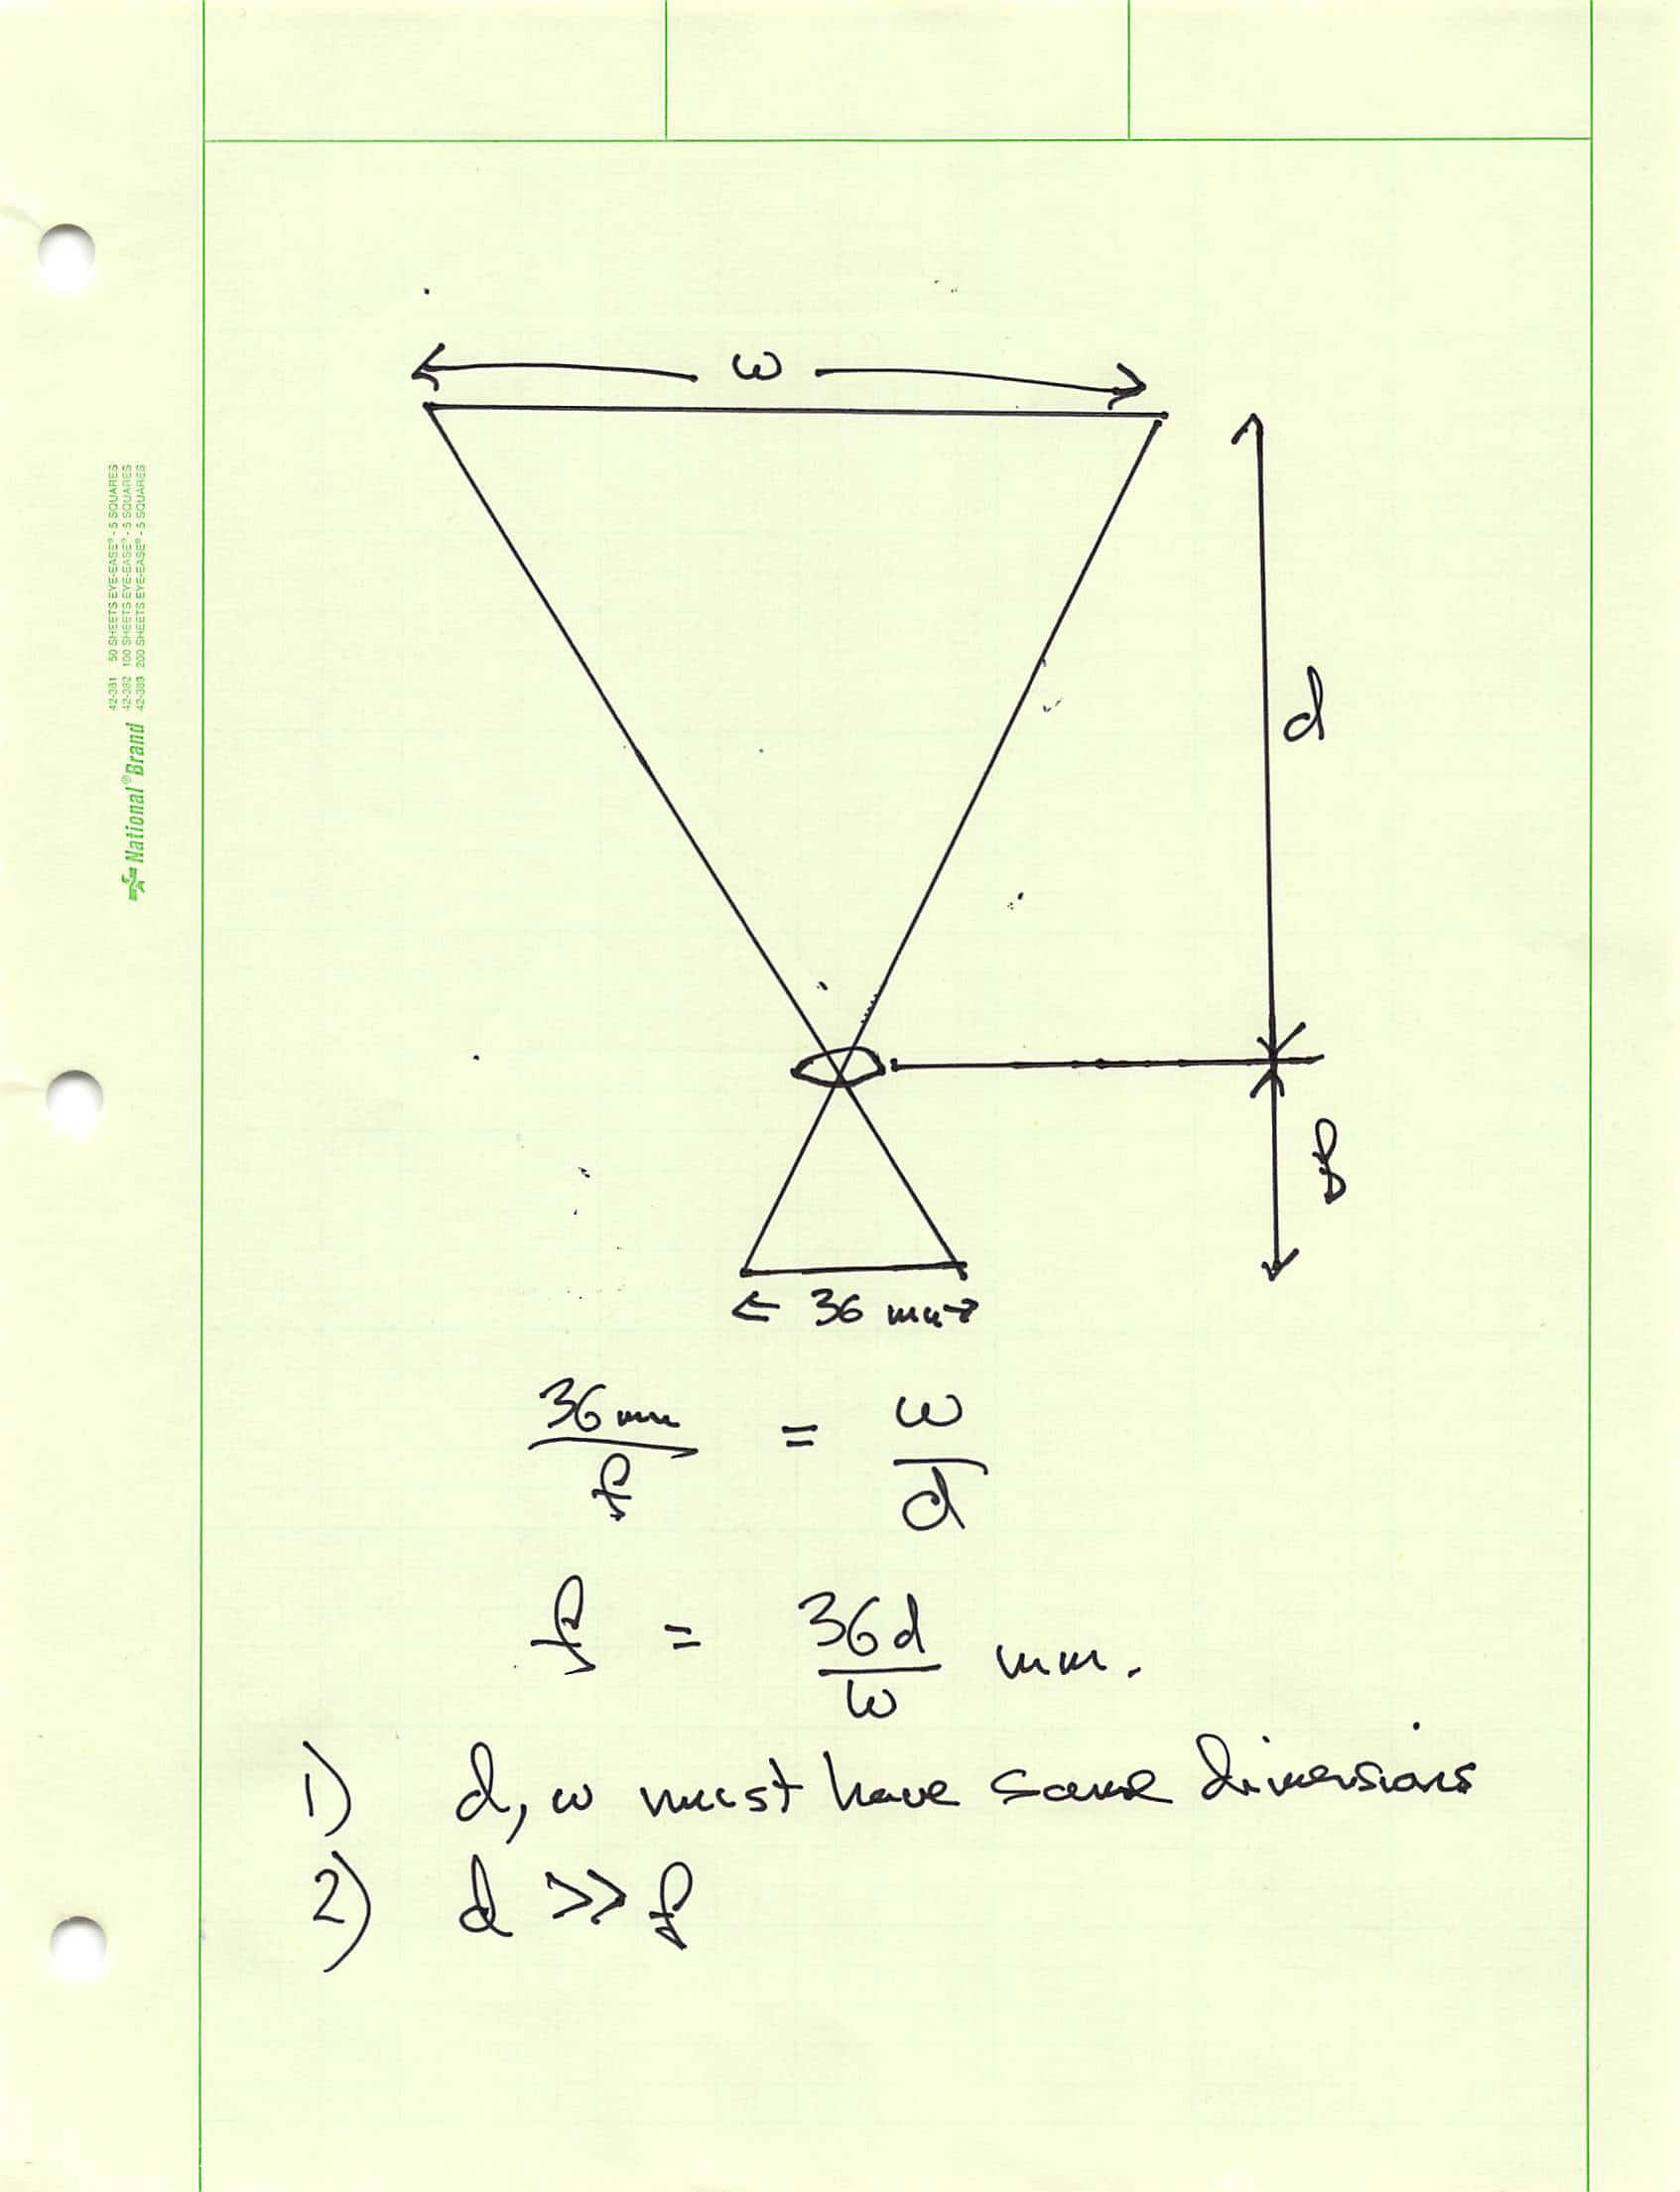 w
d
f
← 36 mm →
36 mm / f = w / d
f = 36d / w mm.
1) d, w must have same dimensions
2) d >> f
42-381 50 SHEETS EYE-EASE® - 5 SQUARES
42-382 100 SHEETS EYE-EASE® - 5 SQUARES
42-389 200 SHEETS EYE-EASE® - 5 SQUARES
National® Brand